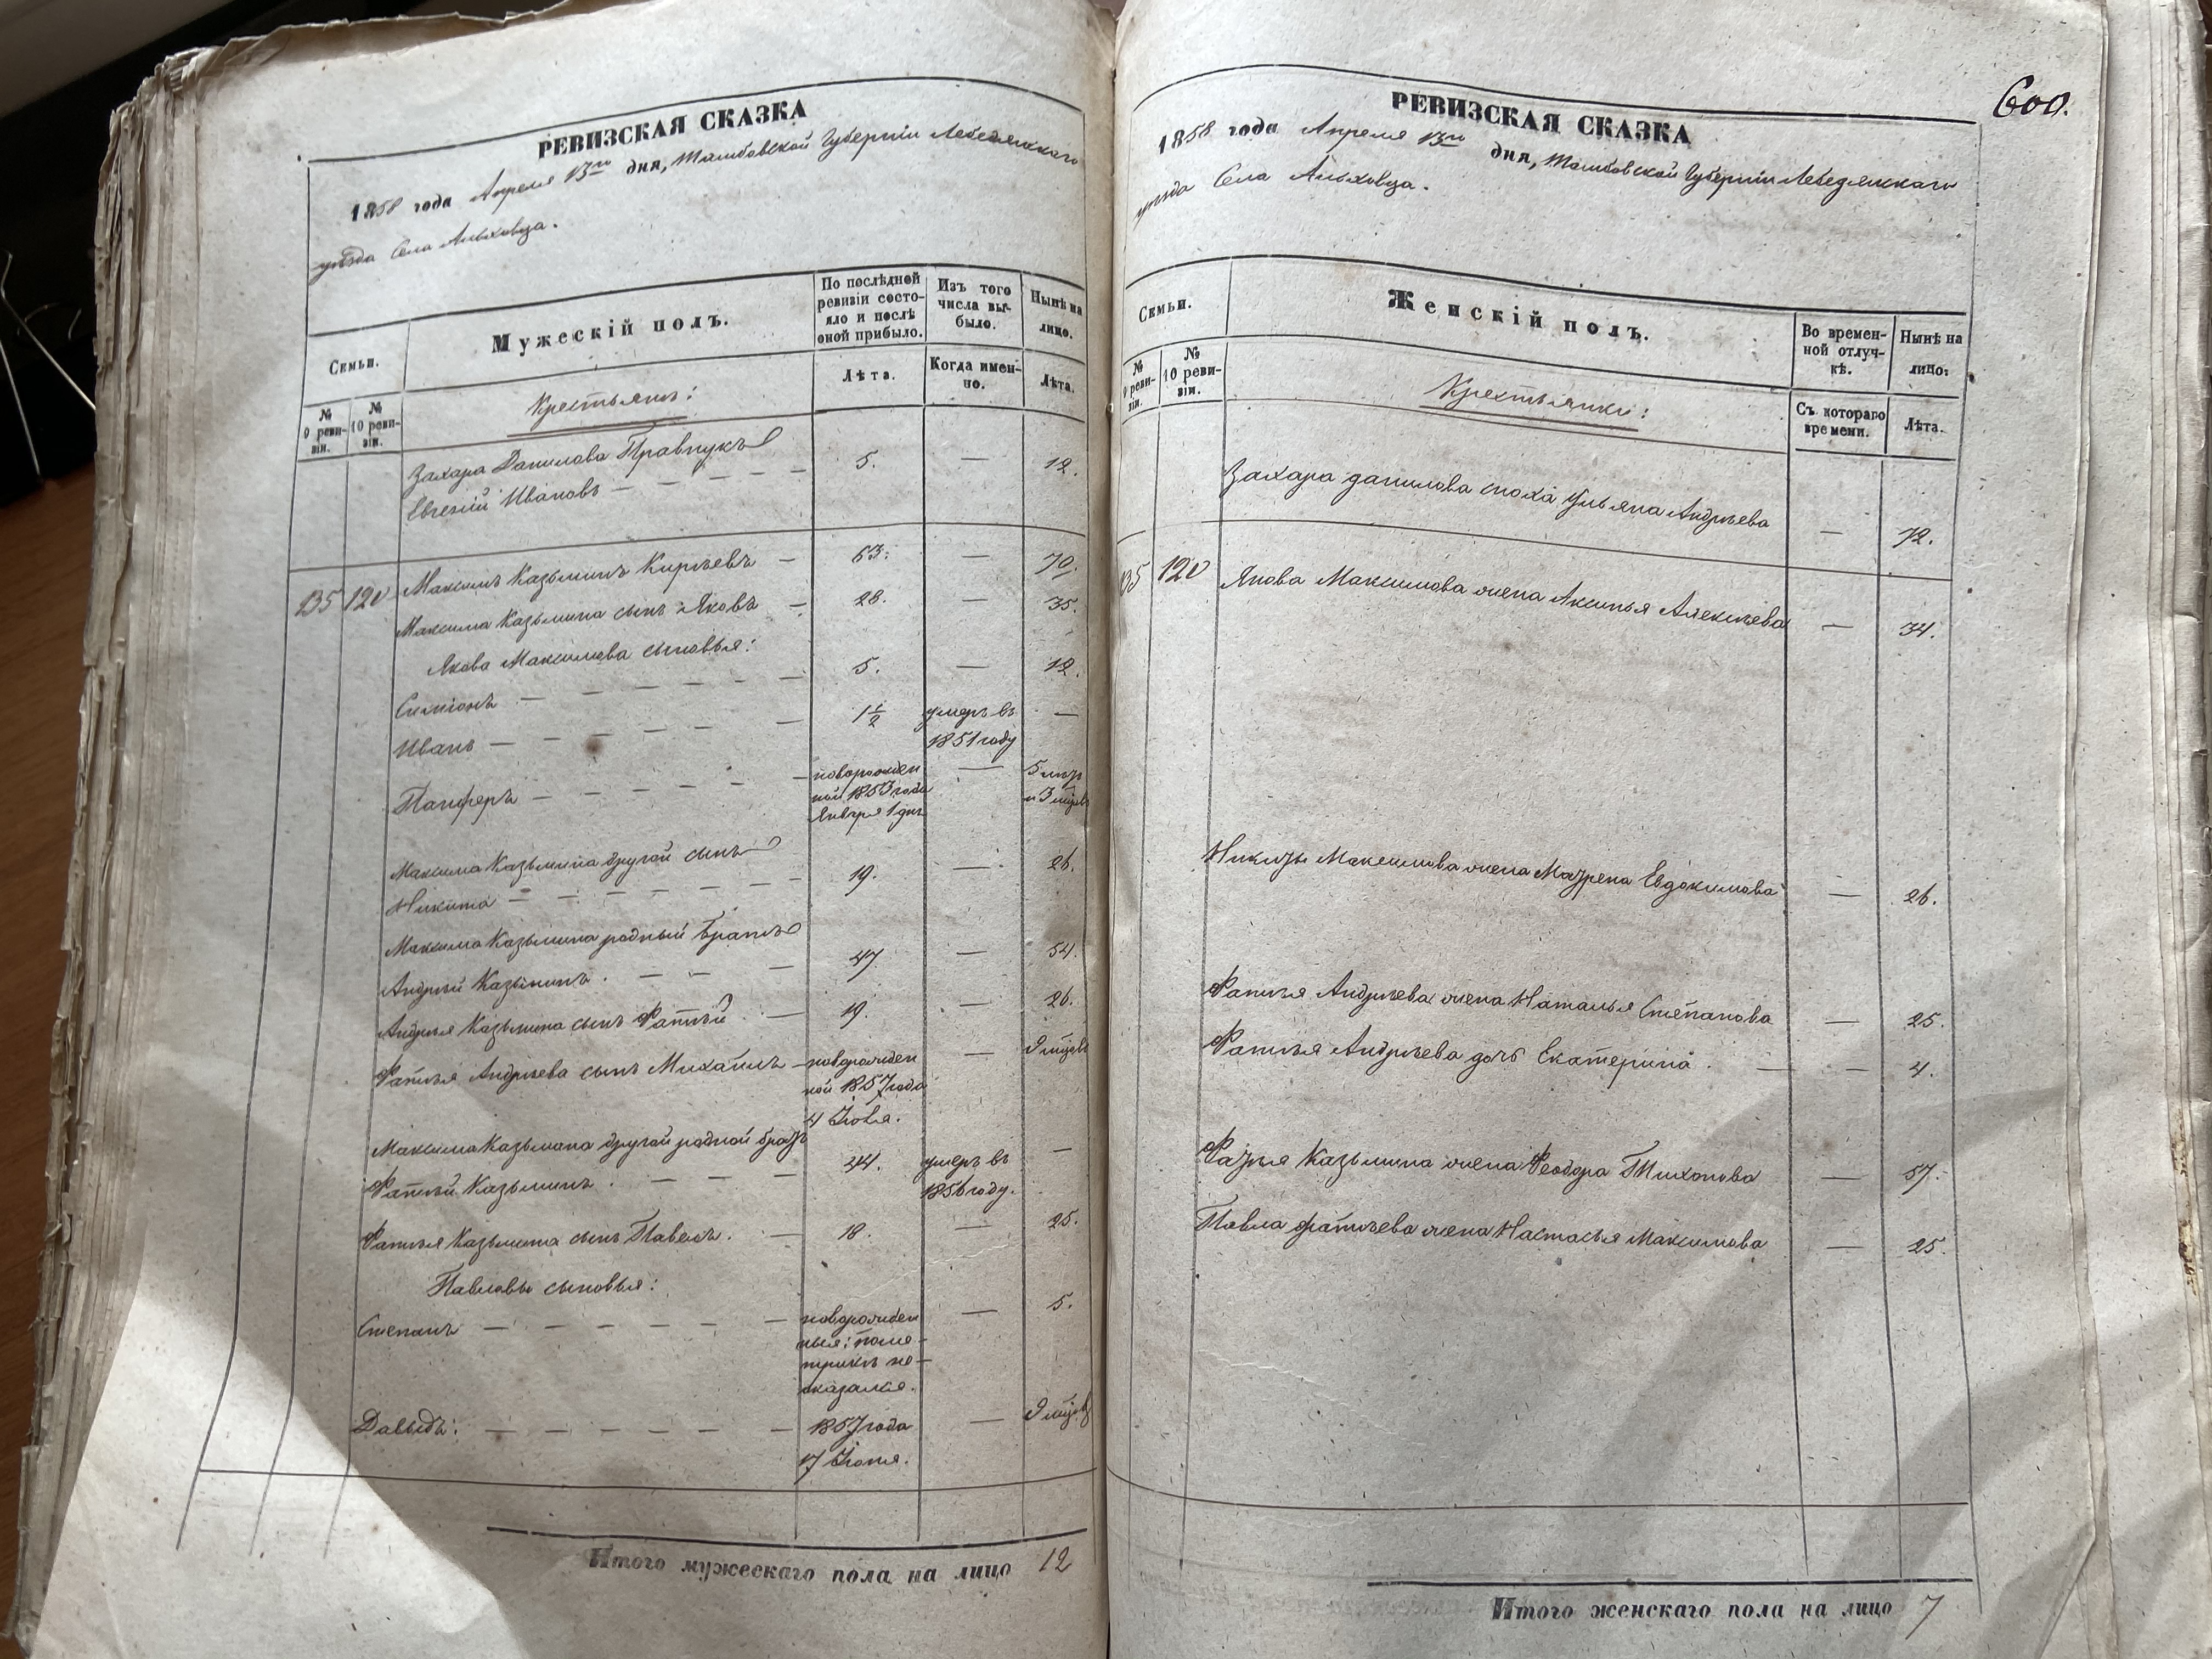 РЕВИЗСКАЯ СКАЗКА
1858 года Апреля 13го дня, Тамбовской Губернiи Лебедянскаго
уѣзда Села Ольховца.
Семьи.
Мужескiй полъ.
По послѣдней ревизiи состояло и послѣ оной прибыло.
Изъ того числа выбыло.
Нынѣ на лицо.
№ 9 ревизiи.
№ 10 ревизiи.
Крестьянъ:
Лѣта.
Когда именно.
Лѣта.
Захара Данилова Правнукъ
Евгенiй Ивановъ — — — 5. — 12.
135 120 Максимъ Казьминъ Кирѣевъ — 63. — 70.
Максима Казьмина сынъ Яковъ — 28. — 35.
Якова Максимова сыновья:
Симiонъ — — — 5. — 12.
Иванъ — — — 1 1/2 умеръ въ 1851 году —
Панферъ — — — новорожден
ной 1853 года
Января 1 дня — 5 лѣтъ
и 3 мѣсяц
Максима Казьмина другой сынъ
Никита — — — 19. — 26.
Максима Казьмина родный братъ
Андрѣй Казьминъ. — — — 47 — 54.
Андрѣя Казьмина сынъ Фатѣй. — 19. — 26.
Фатѣя Андрѣева сынъ Михаилъ — новорожден
ной 1857 года
4 Iюля. — 9 мѣсяц
Максима Казьмина другой родной братъ
Фатѣй Казьминъ. — — 44. умеръ въ
1856 году. —
Фатѣя Казьмина сынъ Павелъ. — 18. — 25.
Павловы сыновья:
Степанъ — — — новорожден
ныя: по ме-
трикѣ не-
оказался. — 5.
Давыдъ: — — — 1857 года
17 Iюня. — 9 мѣсяц
Итого мужескаго пола на лицо 12
600.
РЕВИЗСКАЯ СКАЗКА
1858 года Апреля 13го дня, Тамбовской Губернiи Лебедянскаго
уѣзда Села Ольховца.
Семьи.
Женскiй полъ.
Во временной отлучкѣ.
Нынѣ на лицо:
№ 9 ревизiи.
№ 10 ревизiи.
Крестьянки:
Съ котораго времени.
Лѣта.
Захара данилова сноха Ульяна Андрѣева — 72.
135 120 Якова Максимова жена Аксинья Алексѣева — 34.
Никиты Максимова жена Мавра Евдокимова — 26.
Фатѣя Андрѣева жена Наталья Степанова — 25.
Фатѣя Андрѣева дочь Екатерина. — — 4.
Фатѣя Казьмина жена Феодора Тихонова — 57.
Павла фатѣева жена Настасья Максимова — 25.
Итого женскаго пола на лицо 7